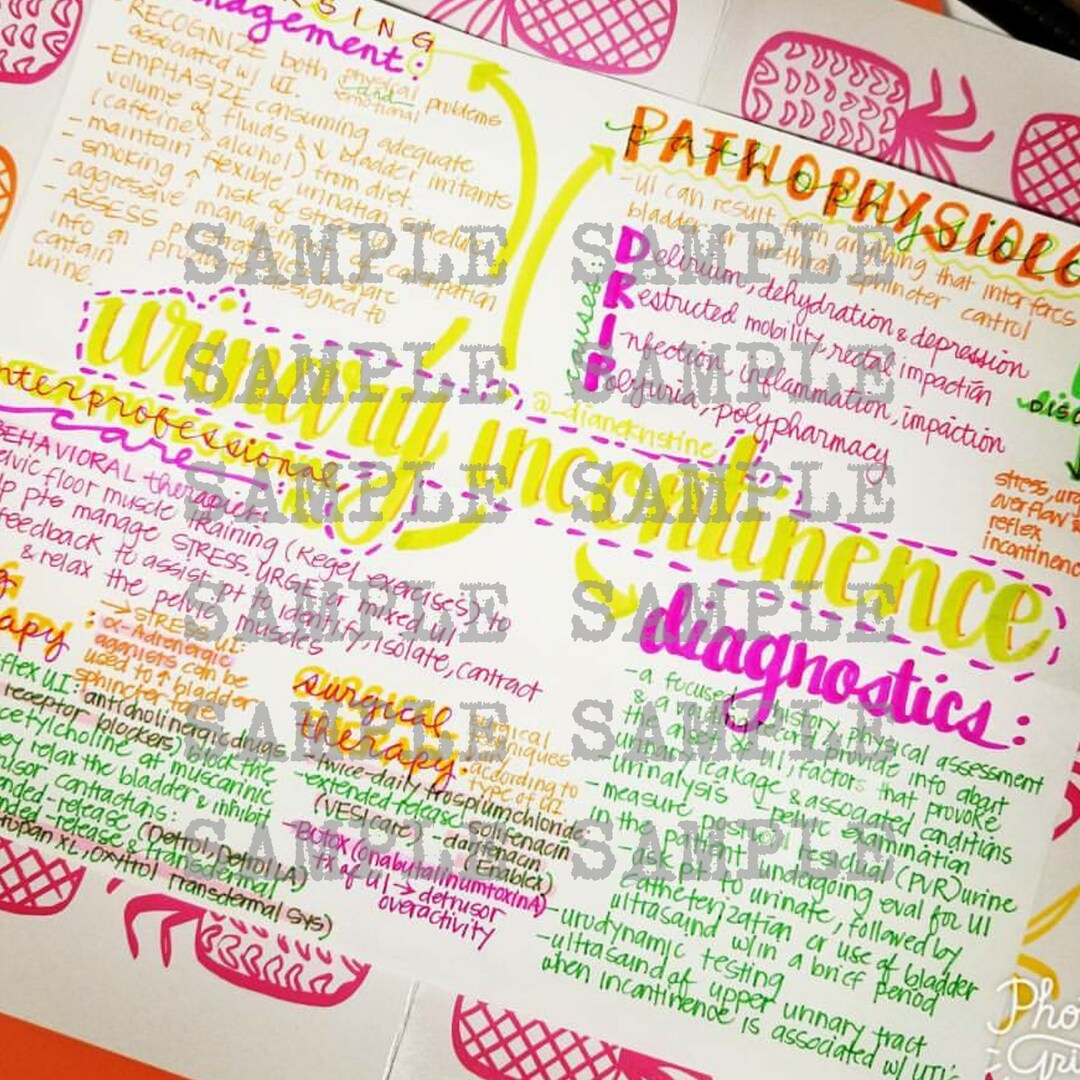 RSING
nagement:
- RECOGNIZE both physical and emotional problems
associated w/ UI.
- EMPHASIZE consuming adequate
volume of fluids & ↓ bladder irritants
(caffeine & alcohol) from diet.
- maintain flexible urination schedule
smoking ↑ risk of stress UI
- aggressive management of constipation
- ASSESS
info on products designed to
contain
urine.
PATHOPHYSIOLO
pathophysiolo
- UI can result from anything that interferes
bladder or urethral sphincter control
causes:
Delirium, dehydration & depression
Restricted mobility, rectal impaction
Infection, inflammation, impaction
Polyfuria, polypharmacy
DISC
stress, ur
overflow &
reflex
incontinenc
urinary incontinence
@_dianekristine
nterprofessional
care
BEHAVIORAL therapies:
elvic floor muscle training (Kegel exercises) to
lp pts manage STRESS, URGE, or mixed UI
feedback to assist pt to identify, isolate, contract
& relax the pelvic muscles
g
apy :
→ STRESS UI:
α-Adrenergic
agonists can be
used to ↑ bladder
sphincter tone
flex UI: anticholinergic drugs
receptor blockers) block the
cetylcholine at muscarinic
ey relax the bladder & inhibit
usor contractions:
nded-release (Detrol, Detrol LA)
nded-release & transdermal
tropan XL, Oxytrol Transdermal Sys)
surgical
therapy:
surgical
techniques
according to
type of UI
- twice-daily trospiumchloride
- extended-release: solifenacin
(VESIcare) - darifenacin
(Enablex)
- BOTOX (onabutalinumtoxinA)
tx of UI → detrusor
overactivity
diagnostics:
- a focused history, physical assessment
& a voiding record provide info about
the onset of UI, factors that provoke
urinary leakage & associated conditions
- urinalysis - pelvic examination
- measure postvoid residual (PVR) urine
in the patient undergoing eval for UI
- ask pt to urinate, followed by
catheterization or use of bladder
ultrasound w/in a brief period
- urodynamic testing
- ultrasound of upper urinary tract
when incontinence is associated w/ UTI's
SAMPLE SAMPLE
SAMPLE SAMPLE
SAMPLE SAMPLE
SAMPLE SAMPLE
SAMPLE SAMPLE
SAMPLE SAMPLE
Pho
Gri